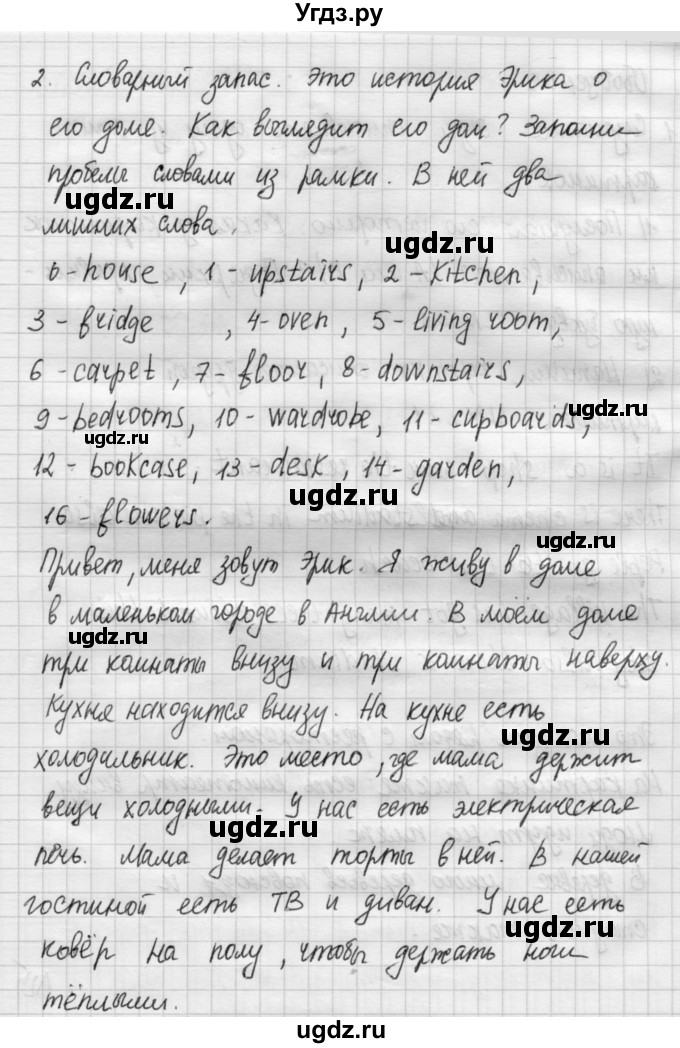 Угдз.ру
2. Словарный запас. Это история Эрика о
его доме. Как выглядит его дом? Заполни
пробелы словами из рамки. В ней два
ugdz.ru
лишних слова.
ugdz.ru
0-house, 1-upstairs, 2-kitchen,
3-fridge, 4-oven, 5-living room,
6-carpet, 7-floor, 8-downstairs,
ugdz.ru
9-bedrooms, 10-wardrobe, 11-cupboards,
ugdz.ru
12-bookcase, 13-desk, 14-garden,
ugdz.ru
16-flowers.
Привет, меня зовут Эрик. Я живу в доме
ugdz.ru
в маленьком городе в Англии. В моём доме
ugdz.ru
три комнаты внизу и три комнаты наверху.
Кухня находится внизу. На кухне есть
ugdz.ru
холодильник. Это место, где мама держит
вещи холодными. У нас есть электрическая
ugdz.ru
печь. Мама делает торты в ней. В нашей
гостиной есть ТВ и диван. У нас есть
ugdz.ru
ковёр на полу, чтобы держать ноги
тёплыми.
ugdz.ru